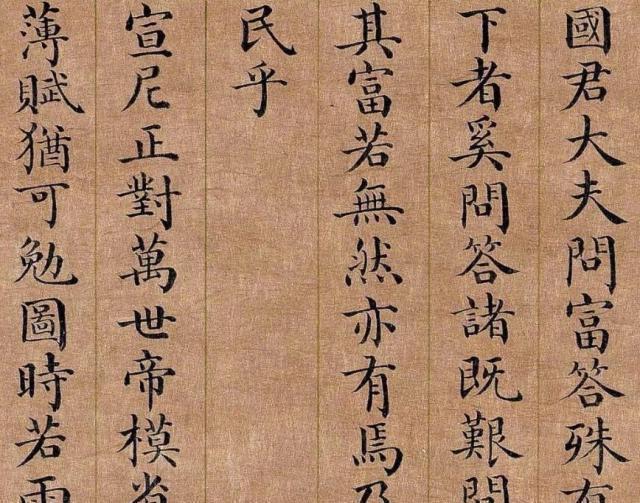 國君大夫問富答殊有
下者奚問答諸既艱問
其富若無然亦有焉乃
民乎
宣尼正對萬世帝模省
薄賦猶可勉圖時若雨